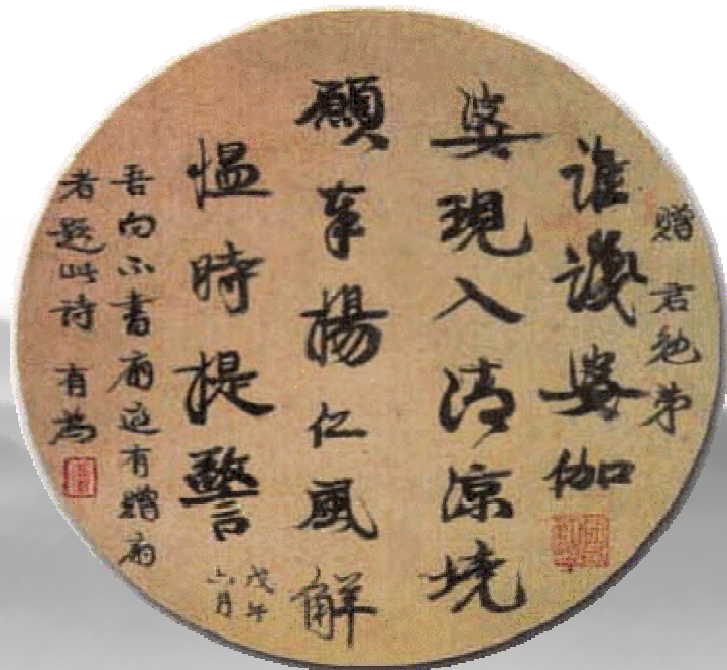 贈 君勉弟
誰識婆伽
婆現入清涼境
願奉揚仁風解
愠時提警
戊午
六月
吾向不書扇近有贈扇
者題此诗 有為